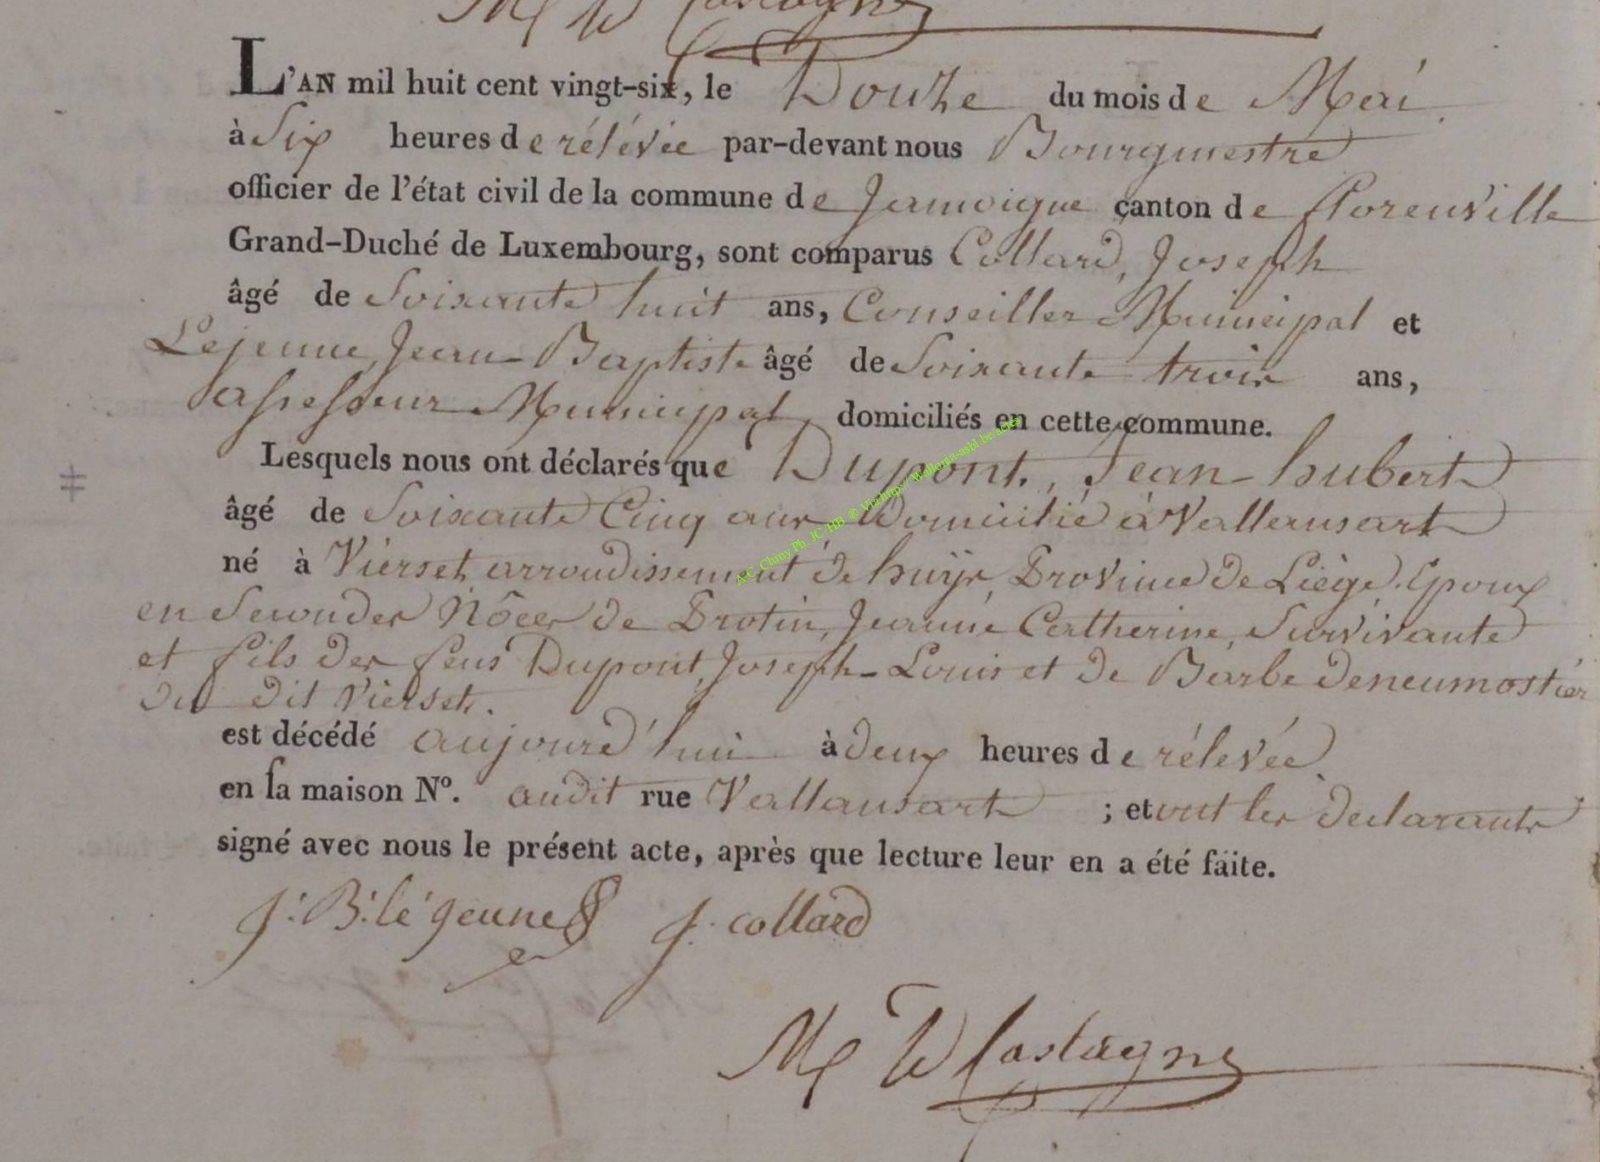 L'AN mil huit cent vingt-six, le Douze du mois de Mai
à Six heures de rélévée par-devant nous Bourgmestre
officier de l'état civil de la commune de Jamoigne canton de florenville
Grand-Duché de Luxembourg, sont comparus Collard, Joseph
âgé de Soixante huit ans, Conseiller Municipal et
Lejeune, Jean-Baptiste âgé de Soixante trois ans,
assesseur Municipal, domiciliés en cette commune.
Lesquels nous ont déclarés que Dupont, Jean-hubert
âgé de Soixante Cinq ans domicilié à Vallansart
né à Vièrset, arrondissement de huÿ, Province de Liège, Epoux
en Secondes Nôces de Protin, Jeanne Catherine, Survivante
et fils des feus Dupont, Joseph-Louis et de Barbe deneumostier
du dit Vièrset.
est décédé aujourd'hui à deux heures de rélevée
en sa maison N°. audit rue Vallansart ; et ont les declarants
signé avec nous le présent acte, après que lecture leur en a été faite.
J: B: léjeune J. collard
Castagne